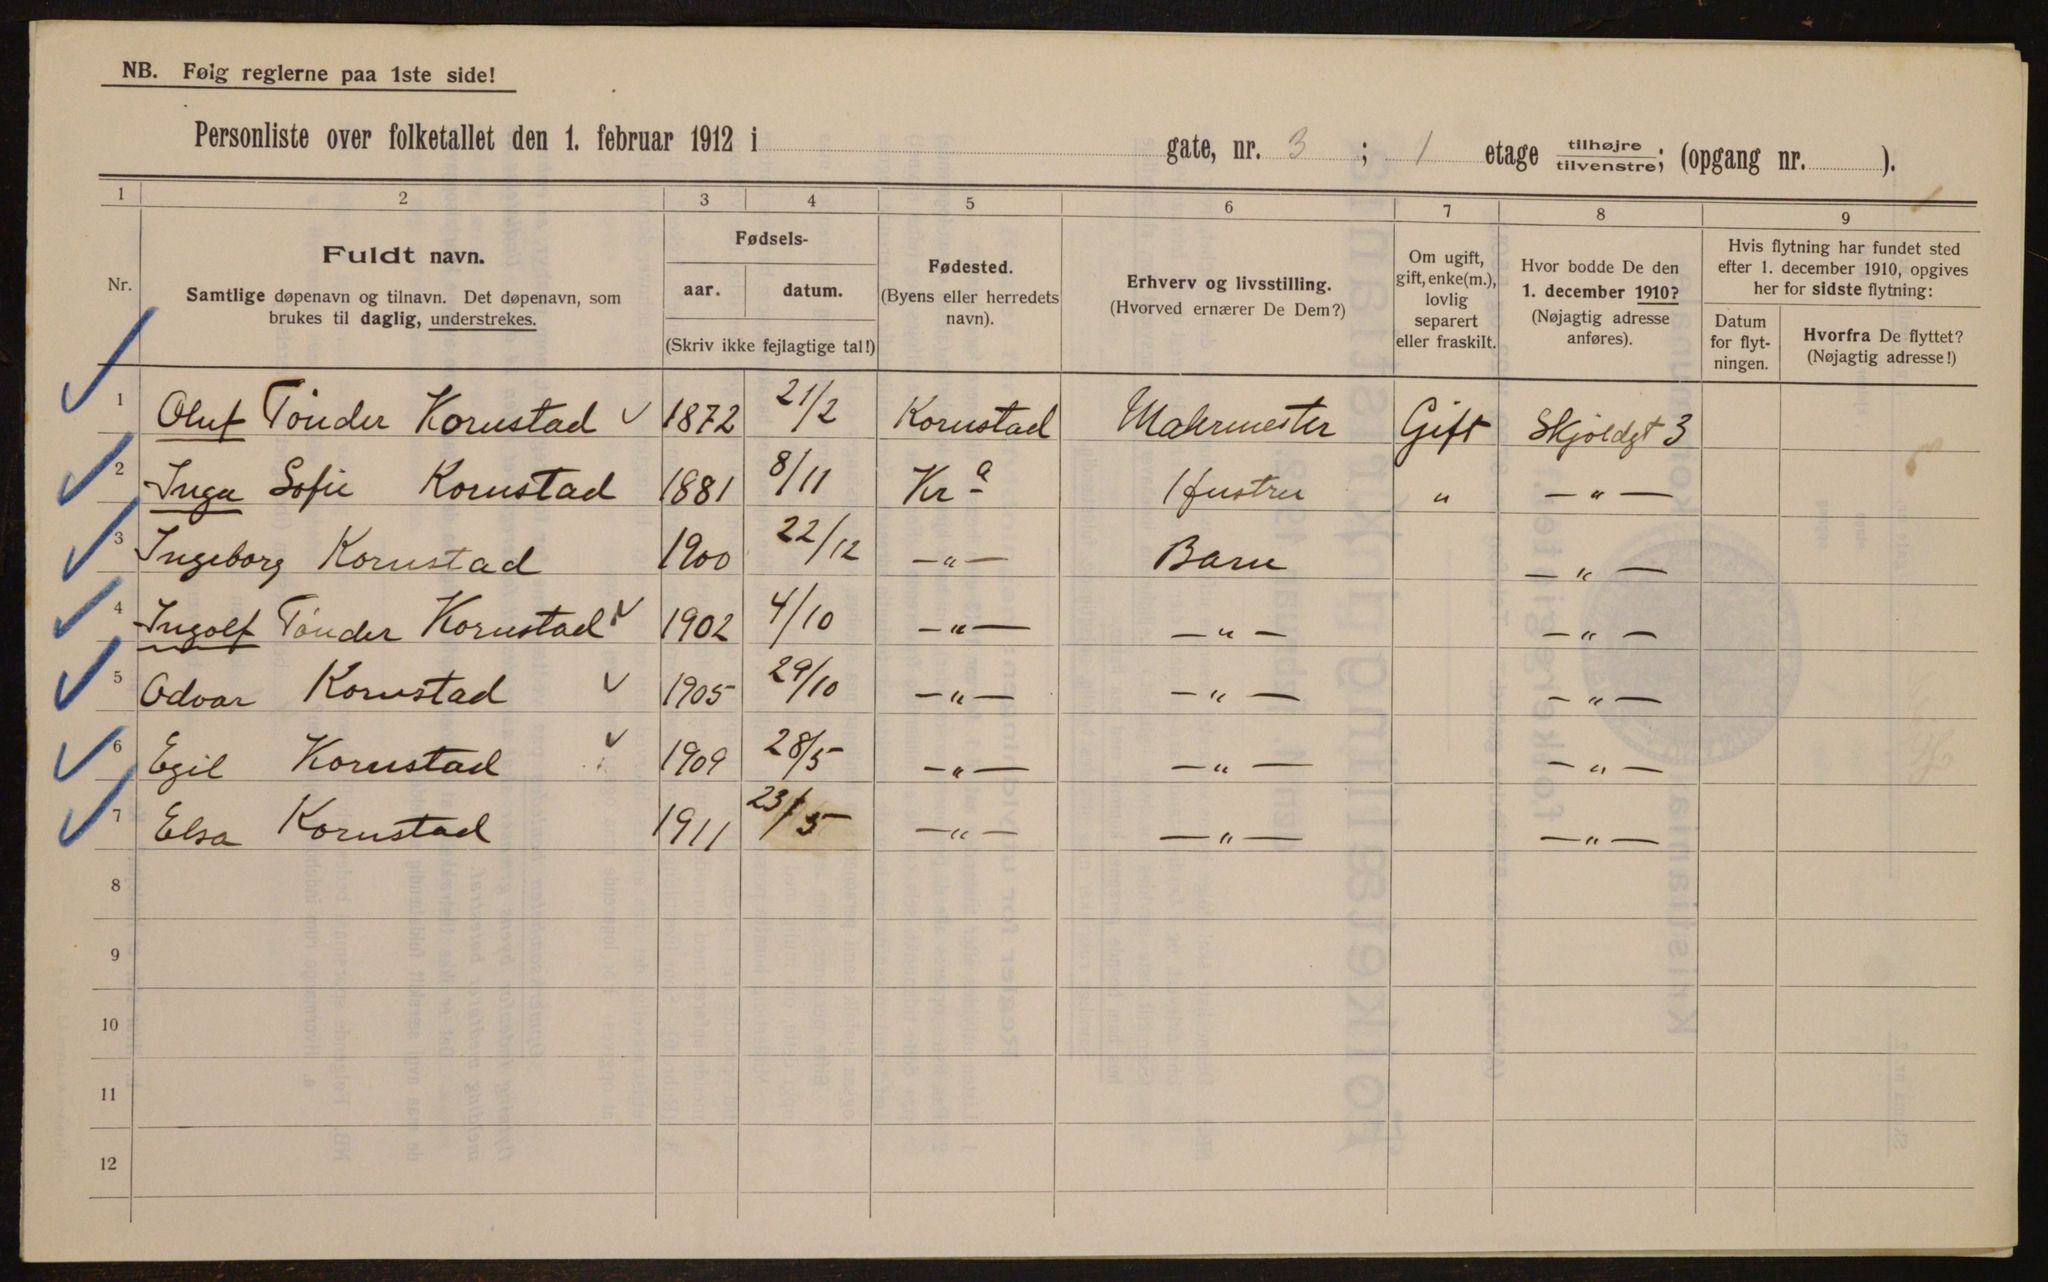 NB. Følg reglerne paa 1ste side!
Personliste over folketallet den 1. februar 1912 i gate, nr. 3 ; 1 etage tilhøjre/tilvenstre; (opgang nr. ).
1 2 3 4 5 6 7 8 9
Nr.
Fuldt navn.
Samtlige døpenavn og tilnavn. Det døpenavn, som
brukes til daglig, understrekes.
Fødsels-
aar. datum.
(Skriv ikke fejlagtige tal!)
Fødested.
(Byens eller herredets
navn).
Erhverv og livsstilling.
(Hvorved ernærer De Dem?)
Om ugift,
gift, enke(m.),
lovlig
separert
eller fraskilt.
Hvor bodde De den
1. december 1910?
(Nøjagtig adresse
anføres).
Hvis flytning har fundet sted
efter 1. december 1910, opgives
her for sidste flytning:
Datum
for flyt-
ningen.
Hvorfra De flyttet?
(Nøjagtig adresse!)
1 Oluf Tönder Kornstad 1872 21/2 Kornstad Malermester Gift Skjoldgt 3
2 Inga Sofie Kornstad 1881 8/11 Kra Hustru " — " —
3 Ingeborg Kornstad 1900 22/12 — " — Barn — " —
4 Ingolf Tönder Kornstad 1902 4/10 — " — — " — — " —
5 Odvar Kornstad 1905 29/10 — " — — " — — " —
6 Egil Kornstad 1909 28/5 — " — — " — — " —
7 Elsa Kornstad 1911 23/5 — " — — " — — " —
8
9
10
11
12